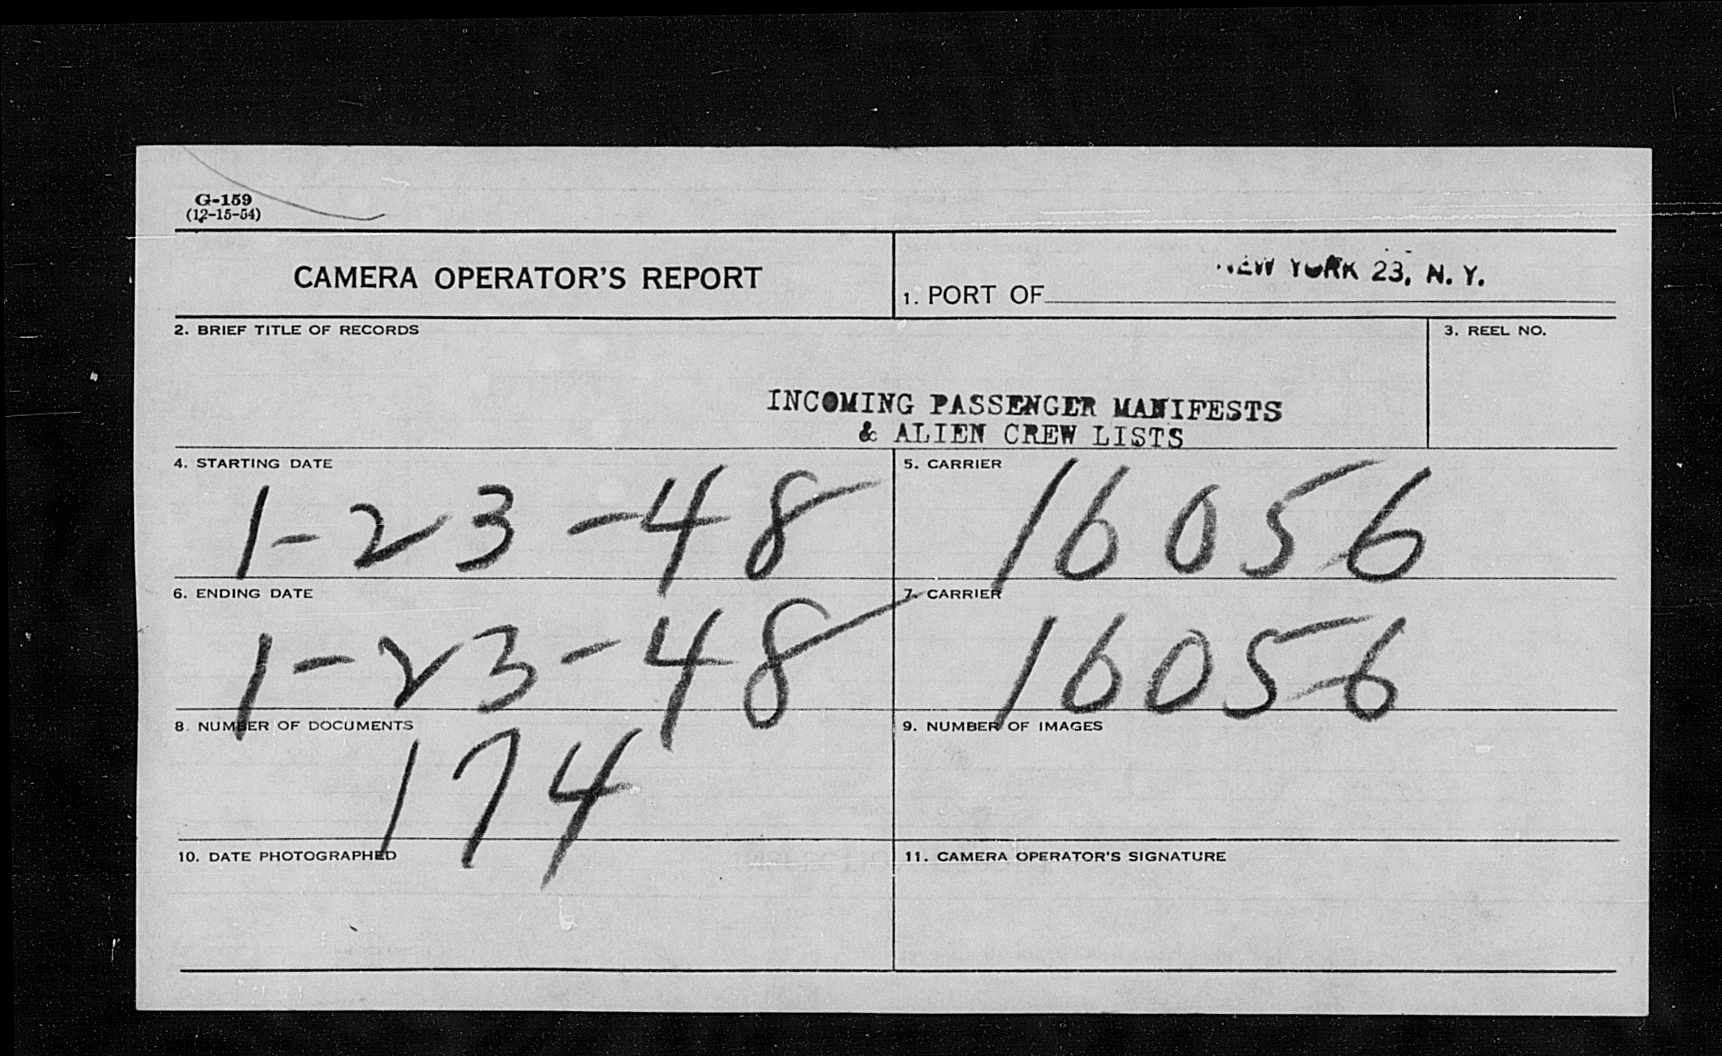 G-159
(12-15-54)
CAMERA OPERATOR'S REPORT
1. PORT OF NEW YORK 23, N.Y.
2. BRIEF TITLE OF RECORDS
3. REEL NO.
INCOMING PASSENGER MANIFESTS
& ALIEN CREW LISTS
4. STARTING DATE
1-23-48
5. CARRIER
16056
6. ENDING DATE
1-23-48
7. CARRIER
16056
8. NUMBER OF DOCUMENTS
174
9. NUMBER OF IMAGES
10. DATE PHOTOGRAPHED
11. CAMERA OPERATOR'S SIGNATURE